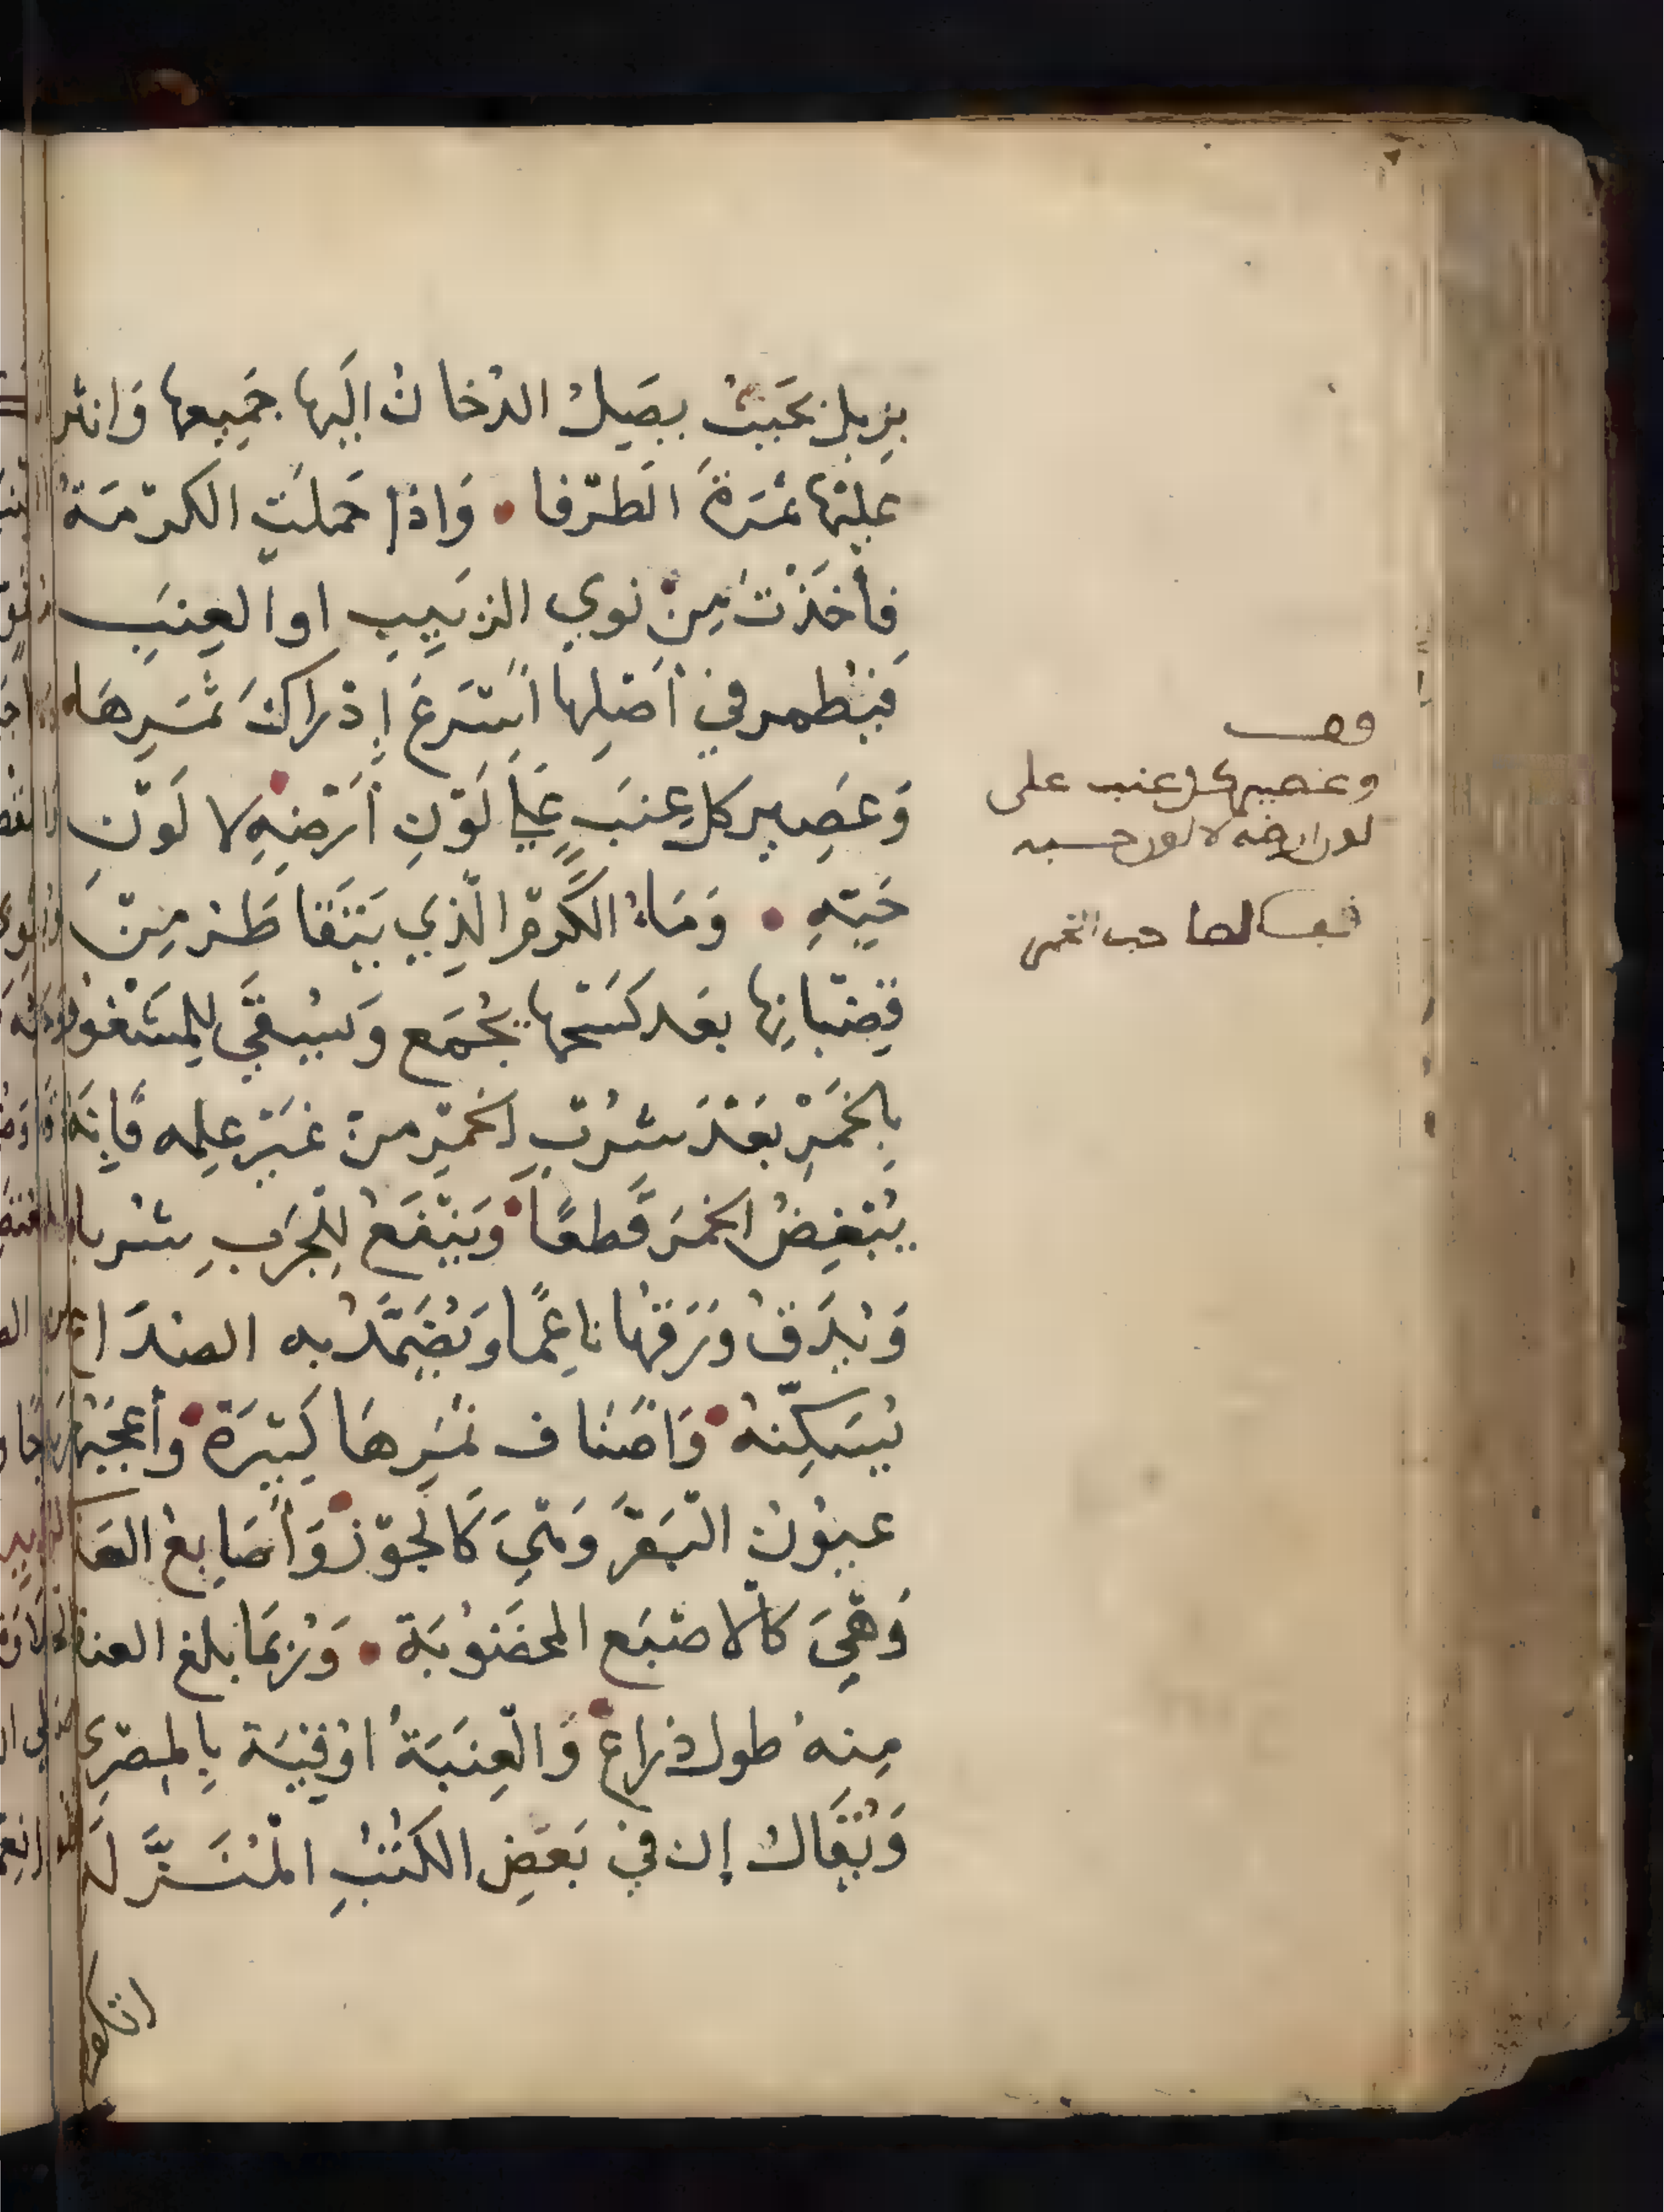 بزبل بحيث يصل الدخان اليها جميعها وانثر
عليها ثمرة الطرفا • واذا حملت الكرمة
فأخذت من نوى الزبيب او العنب
فيطمر في أصلها أسرع إدراك ثمرها
وعصير كل عنب على لون أرضه لا لون
حبه • وماء الكرم الذي يتقاطر من
قضبانها بعد كسحها يجمع ويسقى للمشغوف
بالخمر بعد شرب الخمر من غير علمه فإنه
يبغض الخمر قطعًا • وينفع للجرب شربا
ويدق ورقها ناعمًا ويضمد به الصداع
يسكنه • واصناف ثمرها كثيرة • وأعجبها
عيون البقر وهي كالجوز • وأصابع العذا
وهي كالاصبع المخضوبة • وربما بلغ العنقود
منه طول ذراع • والعنبة اوقية بالمصري
ويقال إن في بعض الكتب المنزلة
وعصير كل عنب على
لون ارضه لا لون حسه
لصاحب الخمر